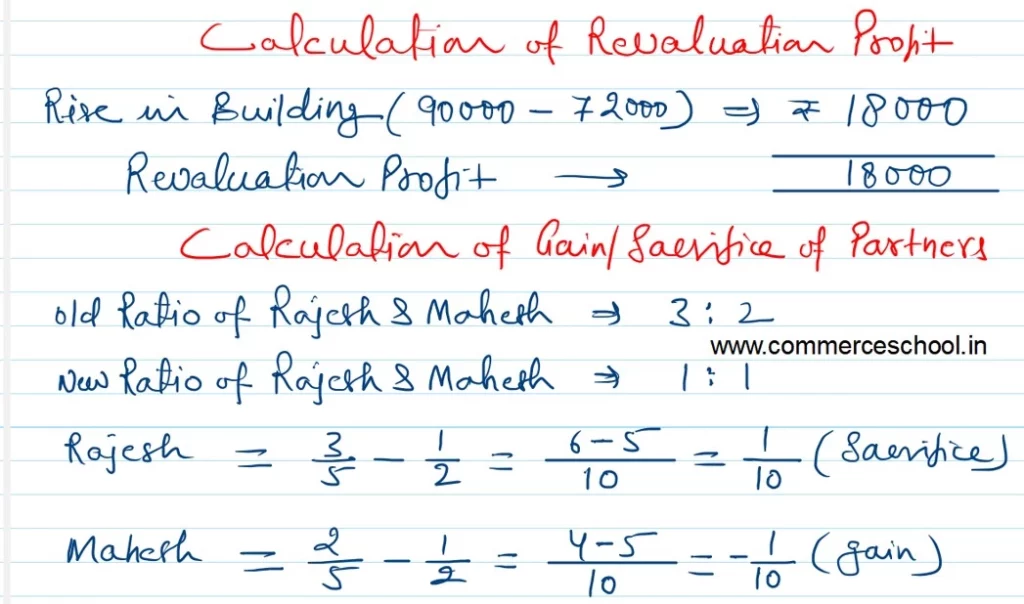 Calculation of Revaluation Profit
Rise in Building (90000 - 72000) ⇒ ₹ 18000
Revaluation Profit → 18000
Calculation of Gain/Sacrifice of Partners
old Ratio of Rajesh & Mahesh ⇒ 3 : 2
www.commerceschool.in
New Ratio of Rajesh & Mahesh ⇒ 1 : 1
Rajesh = 3/5 - 1/2 = 6-5/10 = 1/10 (Sacrifice)
Mahesh = 2/5 - 1/2 = 4-5/10 = -1/10 (gain)